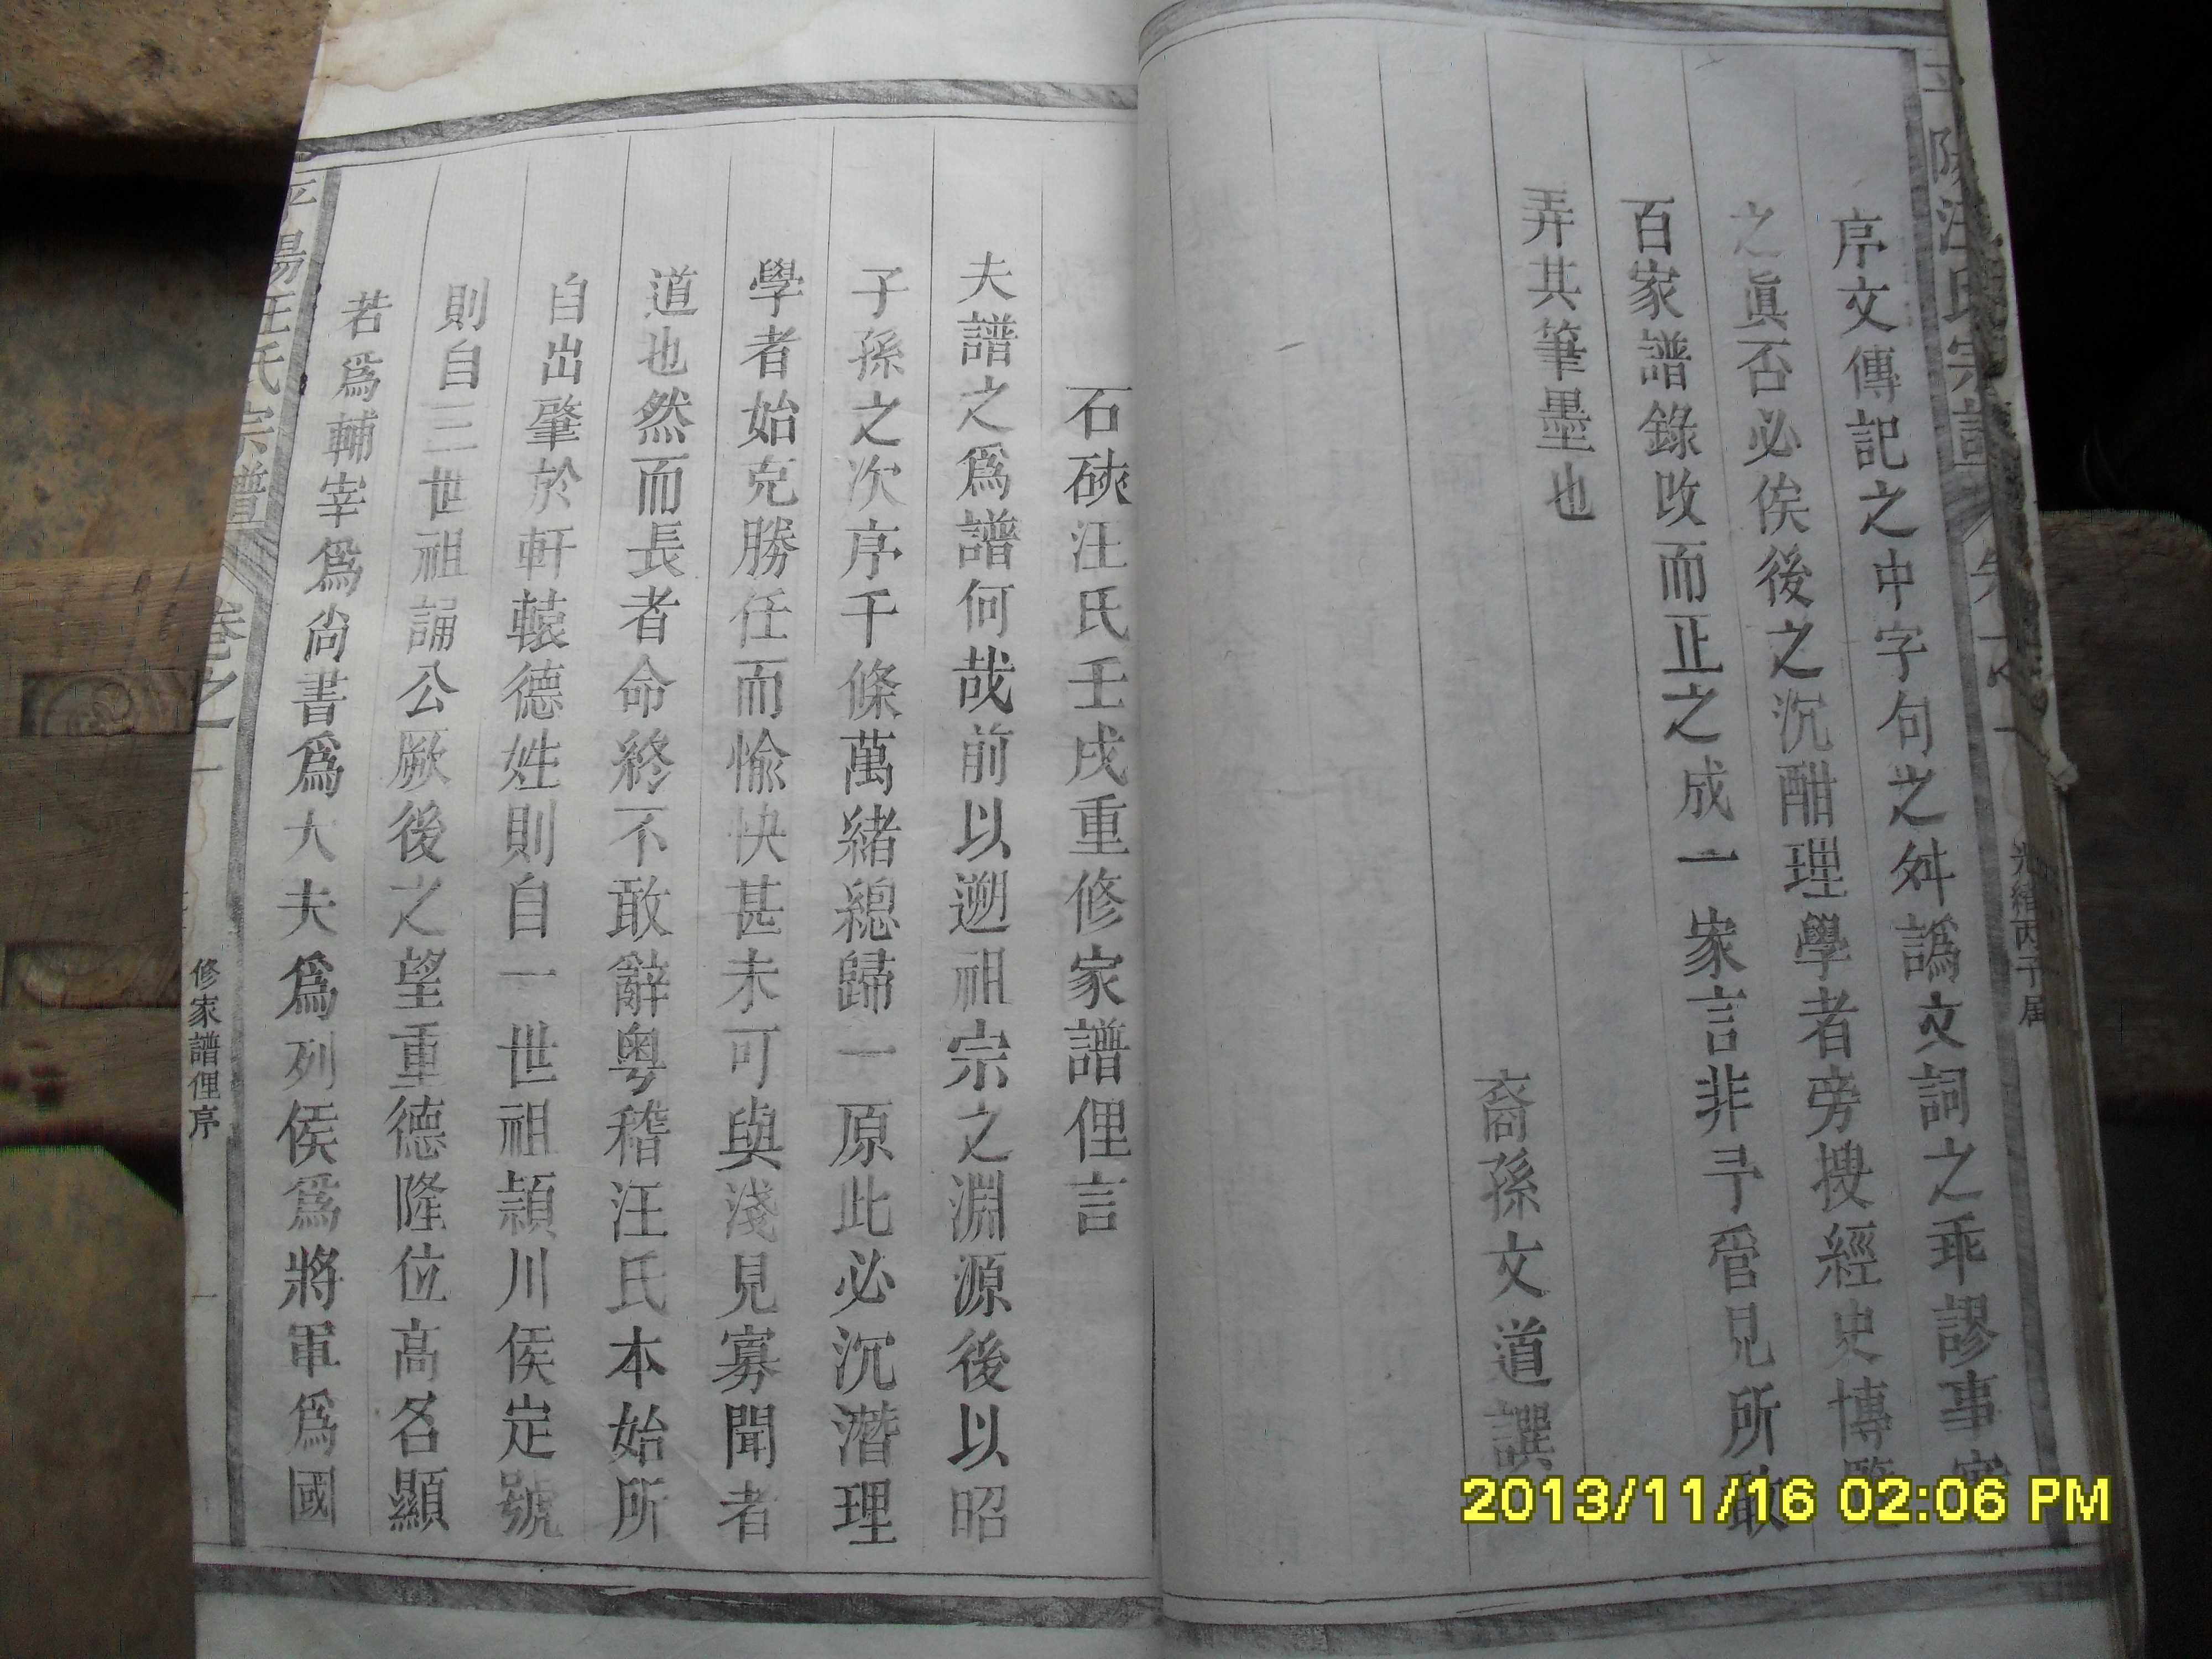 序文傳記之中字句之舛譌文詞之乖謬事實
之眞否必俟後之沉酣理學者旁搜經史博覽
百家譜錄改而正之成一家言非予管見所敢
弄其筆墨也
裔孫文道譔
石硤汪氏壬戌重修家譜俚言
夫譜之爲譜何哉前以遡祖宗之淵源後以昭
子孫之次序千條萬緒總歸一原此必沉潛理
學者始克勝任而愉快甚未可與淺見寡聞者
道也然而長者命終不敢辭粤稽汪氏本始所
自出肇於軒轅德姓則自一世祖頴川侯定號
則自三世祖誦公厥後之望重德隆位高名顯
若爲輔宰爲尙書爲大夫爲列侯爲將軍爲國
平陽汪氏宗譜
卷之一
修家譜俚序
一
汪氏宗譜
光緒丙子届
2013/11/16 02:06 PM